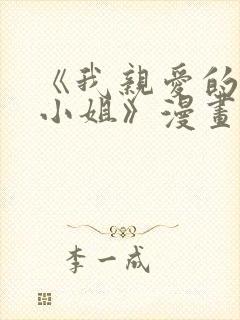 《我親愛的
小姐》漫畫
李一成